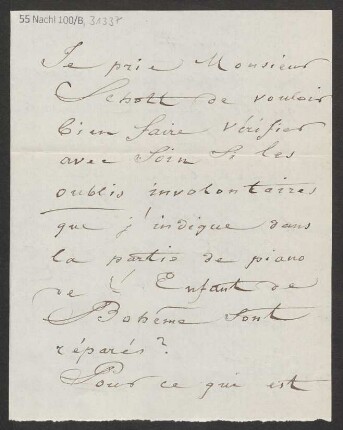 55 Nachl 100/B, 31337
Je prie Monsieur
Schott de vouloir
bien faire vérifier
avec soin si les
oublis involontaires
que j'indique dans
la partie de piano
de l'Enfant de
Bohême sont
réparés?
Pour ce qui est